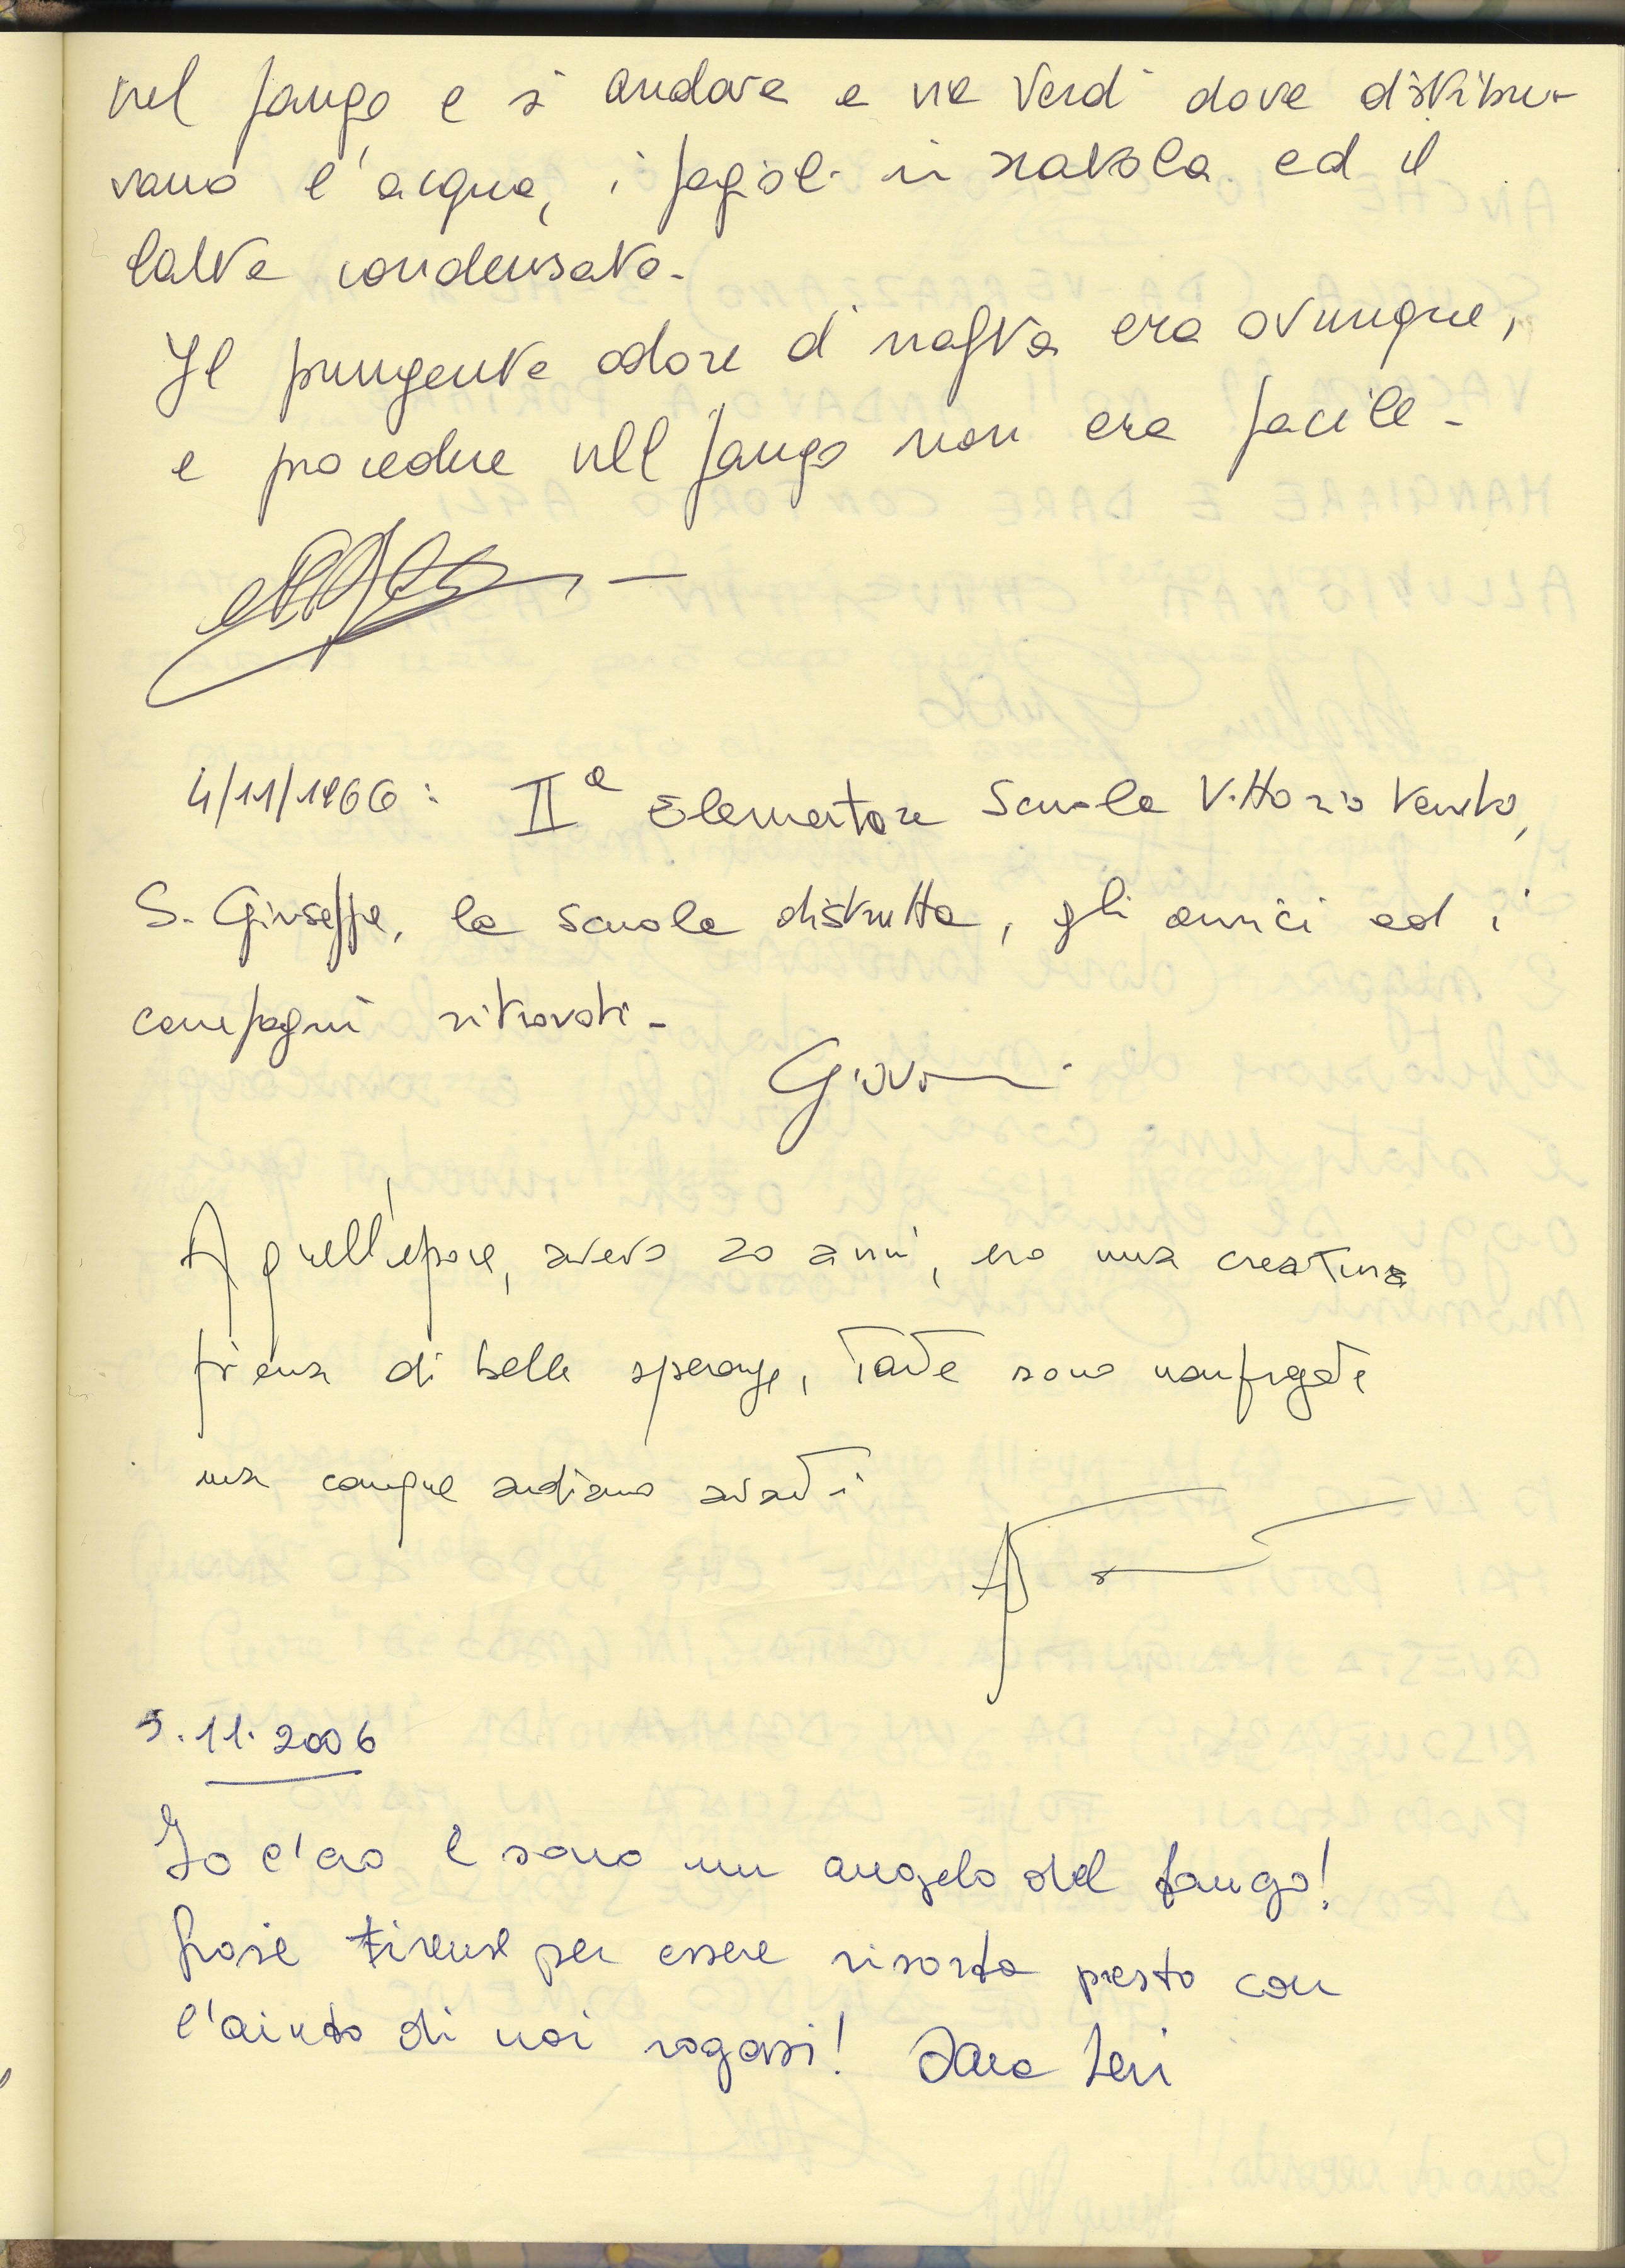 nel fango e si andava a via Verdi dove distribui-
vano l'acqua, i fagioli in scatola ed il
latte condensato.
Il pungente odore di nafta era ovunque,
e procedere nel fango non era facile.
4/11/1966: IIª Elementare Scuola Vittorio Veneto,
S. Giuseppe, la scuola distrutta, gli amici ed i
compagni ritrovati.
A quell'epoca, avevo 20 anni, ero una creatura
piena di belle speranze, tante sono naufragate
ma comque andiamo avanti
5.11.2006
Io c'ero e sono un angelo del fango!
Grazie Firenze per essere risorta presto con
l'aiuto di noi ragazzi! Sara